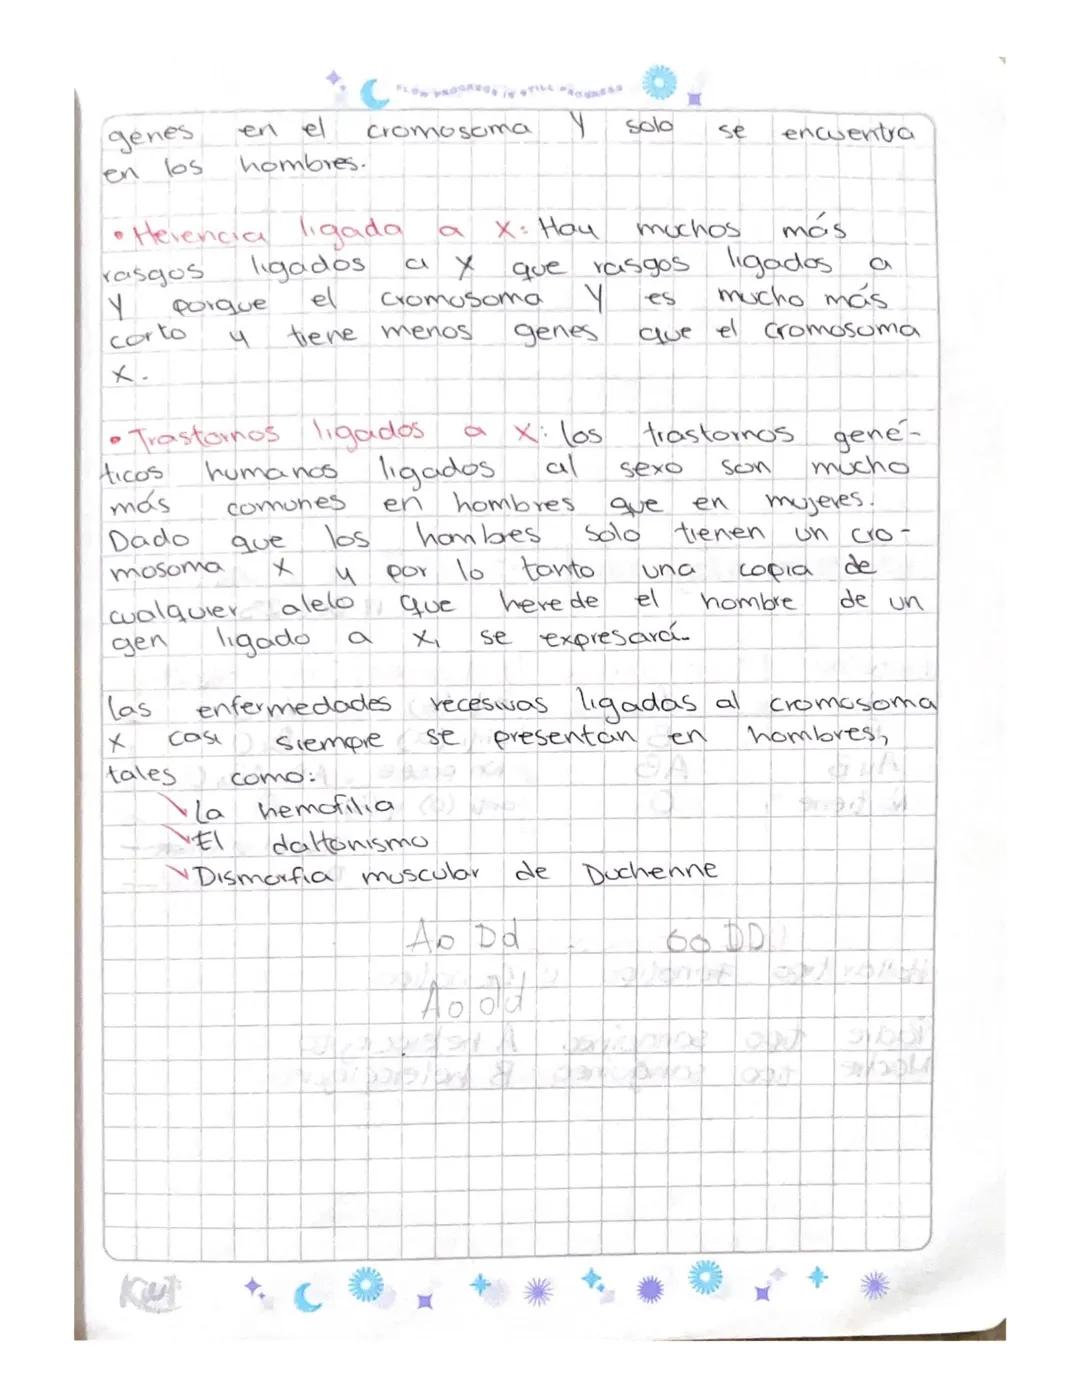 SLOW PROGRESS IS STILL PROGRESS
genes en el cromosoma Y solo se encuentra
en los hombres.
• Herencia ligada a X: Hay muchos más
rasgos ligados a X que rasgos ligados a
Y porque el cromosoma Y es mucho más
corto y tiene menos genes que el cromosoma
X.
• Trastornos ligados a X: los trastornos gené-
ticos humanos ligados al sexo son mucho
más comunes en hombres que en mujeres.
Dado que los hombres solo tienen un cro-
mosoma X y por lo tanto una copia de
cualquier alelo que herede el hombre de un
gen ligado a X, se expresará.
las enfermedades recesivas ligadas al cromosoma
X casi siempre se presentan en hombres,
tales como:
La hemofilia
El daltonismo
Dismorfia muscular de Duchenne
Ao Dd oo DD
Ao Dd